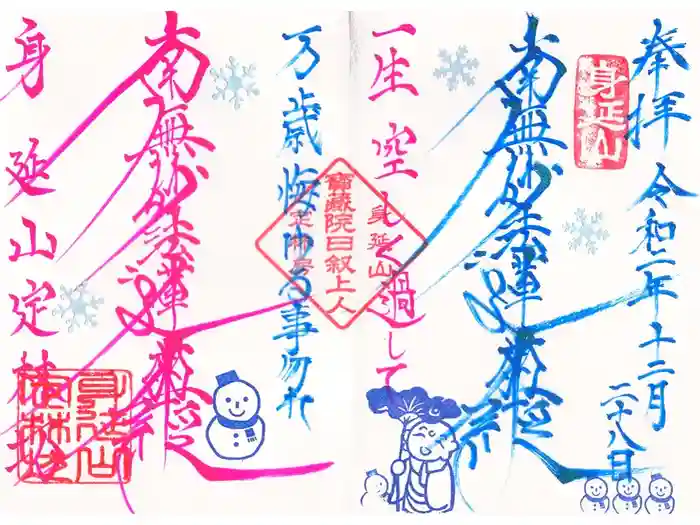 奉拝 令和二年十二月
二十八日
身延山
南無妙法蓮華経
一生空しく過して
身延山
寶蔵院日叙上人
定林房
万歳悔ゆる事勿れ
南無妙法蓮華経
身延山定林坊